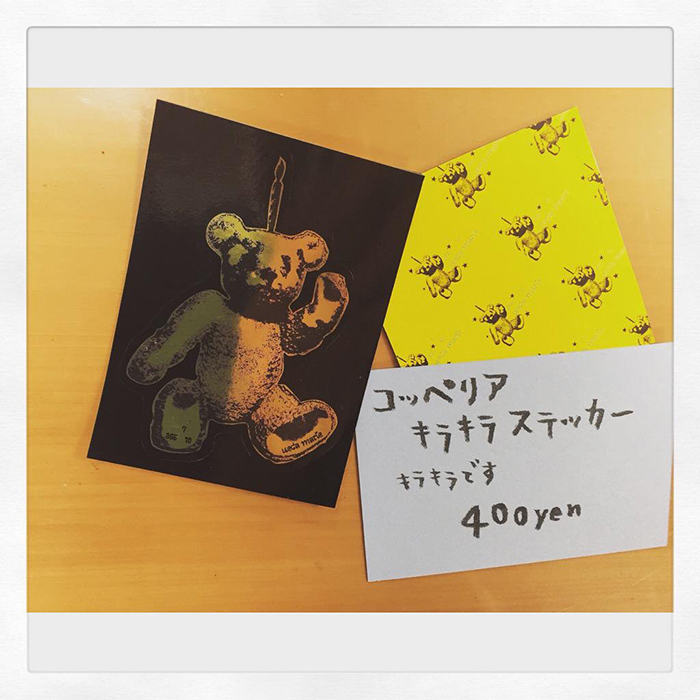 7
365 10
コッペリア
キラキラ ステッカー
キラキラです
400yen